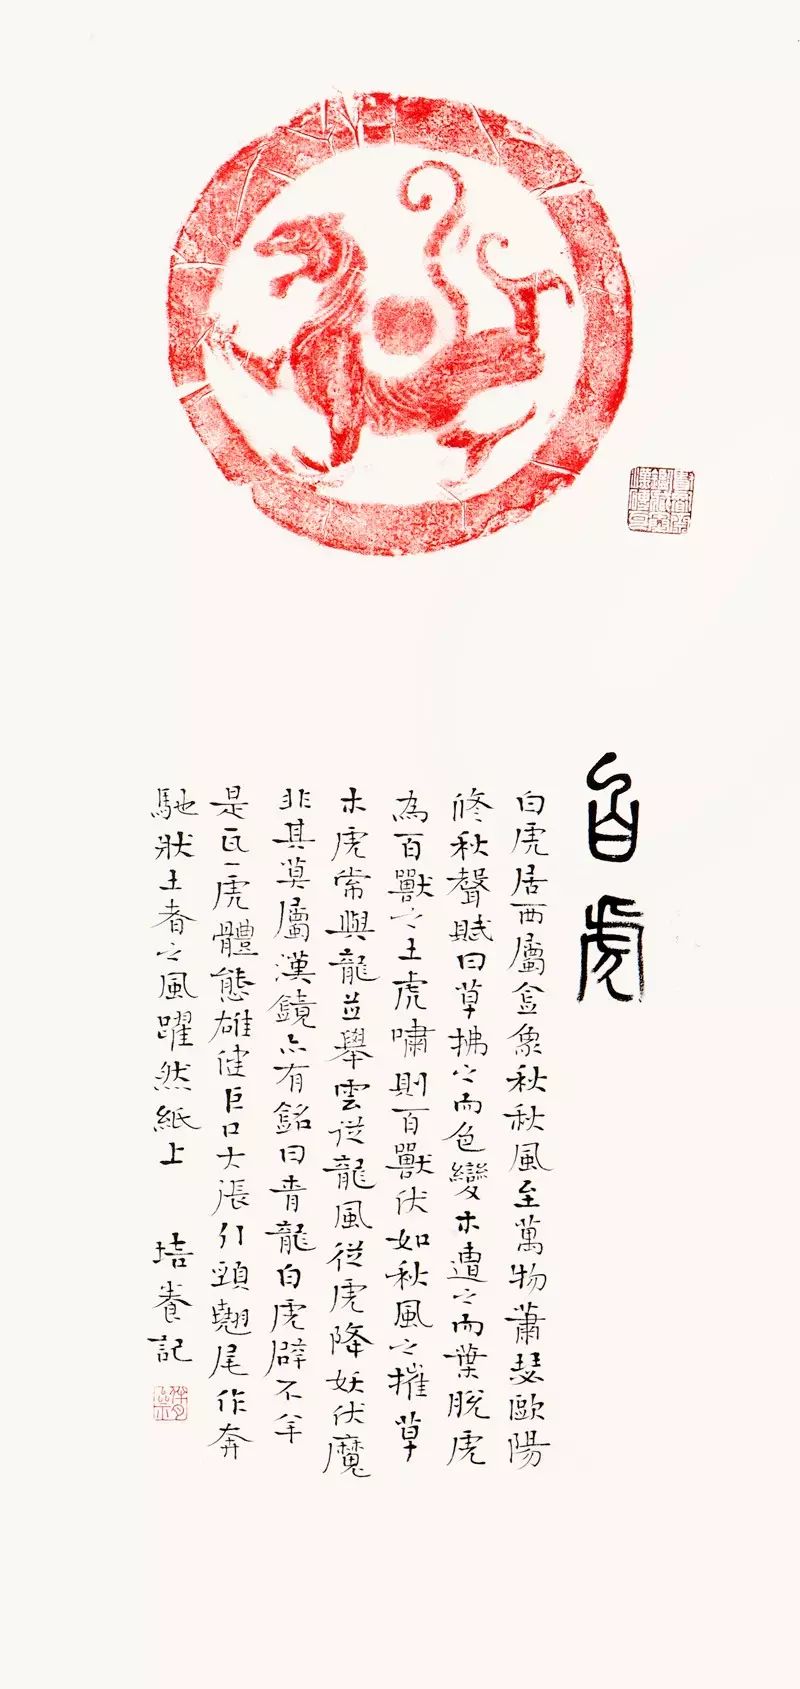 白虎
白虎居西屬金象秋秋風至萬物蕭瑟歐陽
修秋聲賦曰草拂之而色變木遭之而葉脫虎
為百獸之王虎嘯則百獸伏如秋風之摧草
木虎常與龍並舉雲從龍風從虎降妖伏魔
非其莫屬漢鏡亦有銘曰青龍白虎辟不羊
是瓦一虎體態雄健巨口大張引頸翹尾作奔
馳狀王者之風躍然紙上 培養記